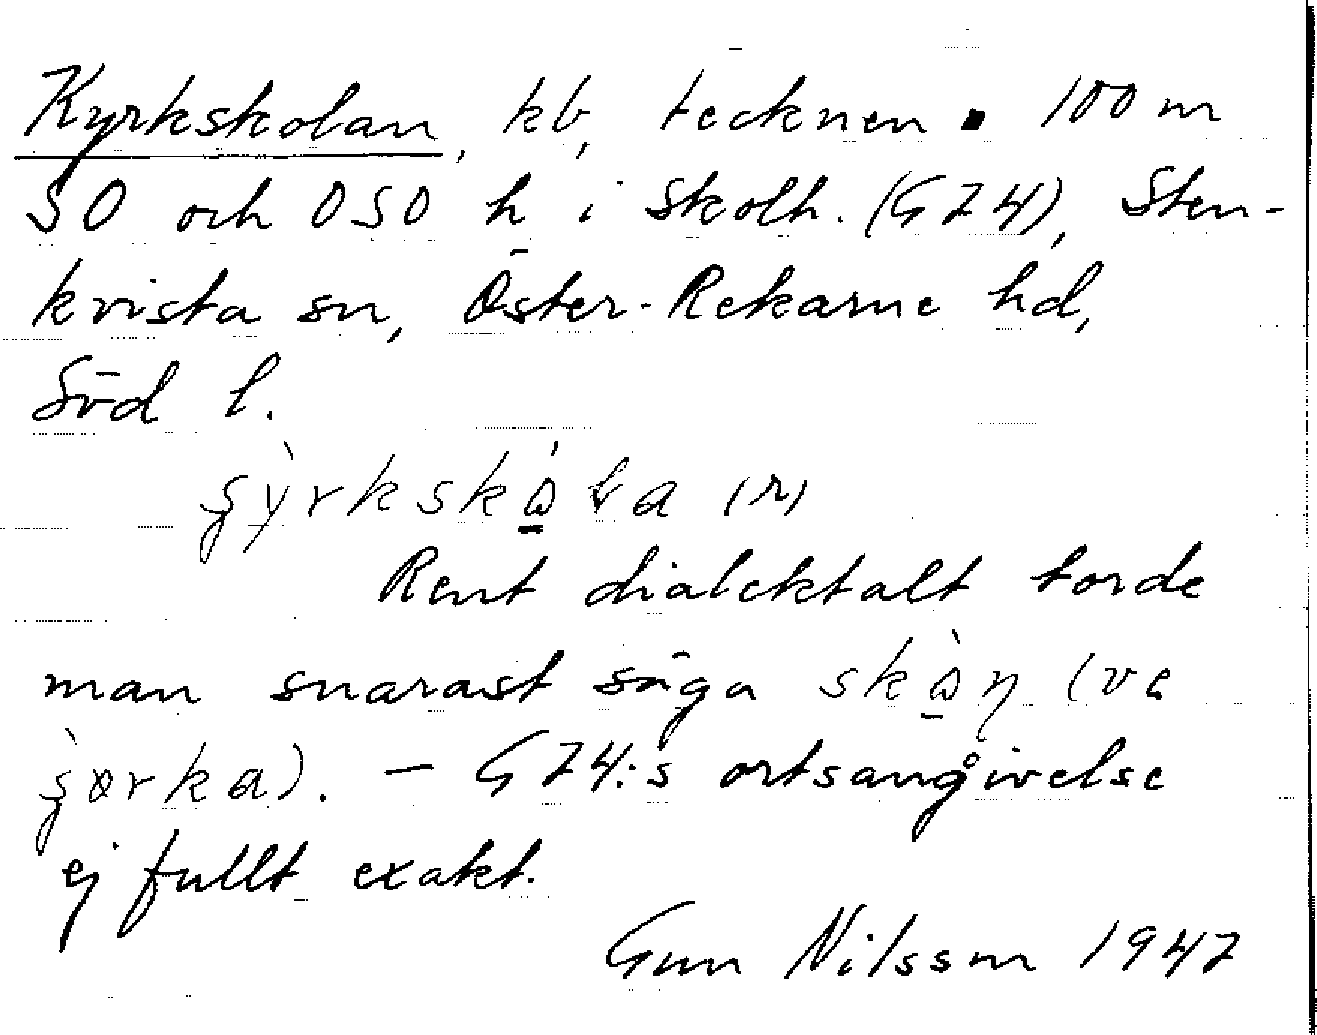 Kyrkskolan, kb, tecknen ▪ 100 m
SO och OSO h i Skolh. (GZ4), Sten-
kvista sn, Öster-Rekarne hd,
Söd l.
(n)
Rent dialektalt torde
man snarast säga (ve
). — GZ4:s ortsangivelse
ej fullt exakt.
Gun Nilsson 1947